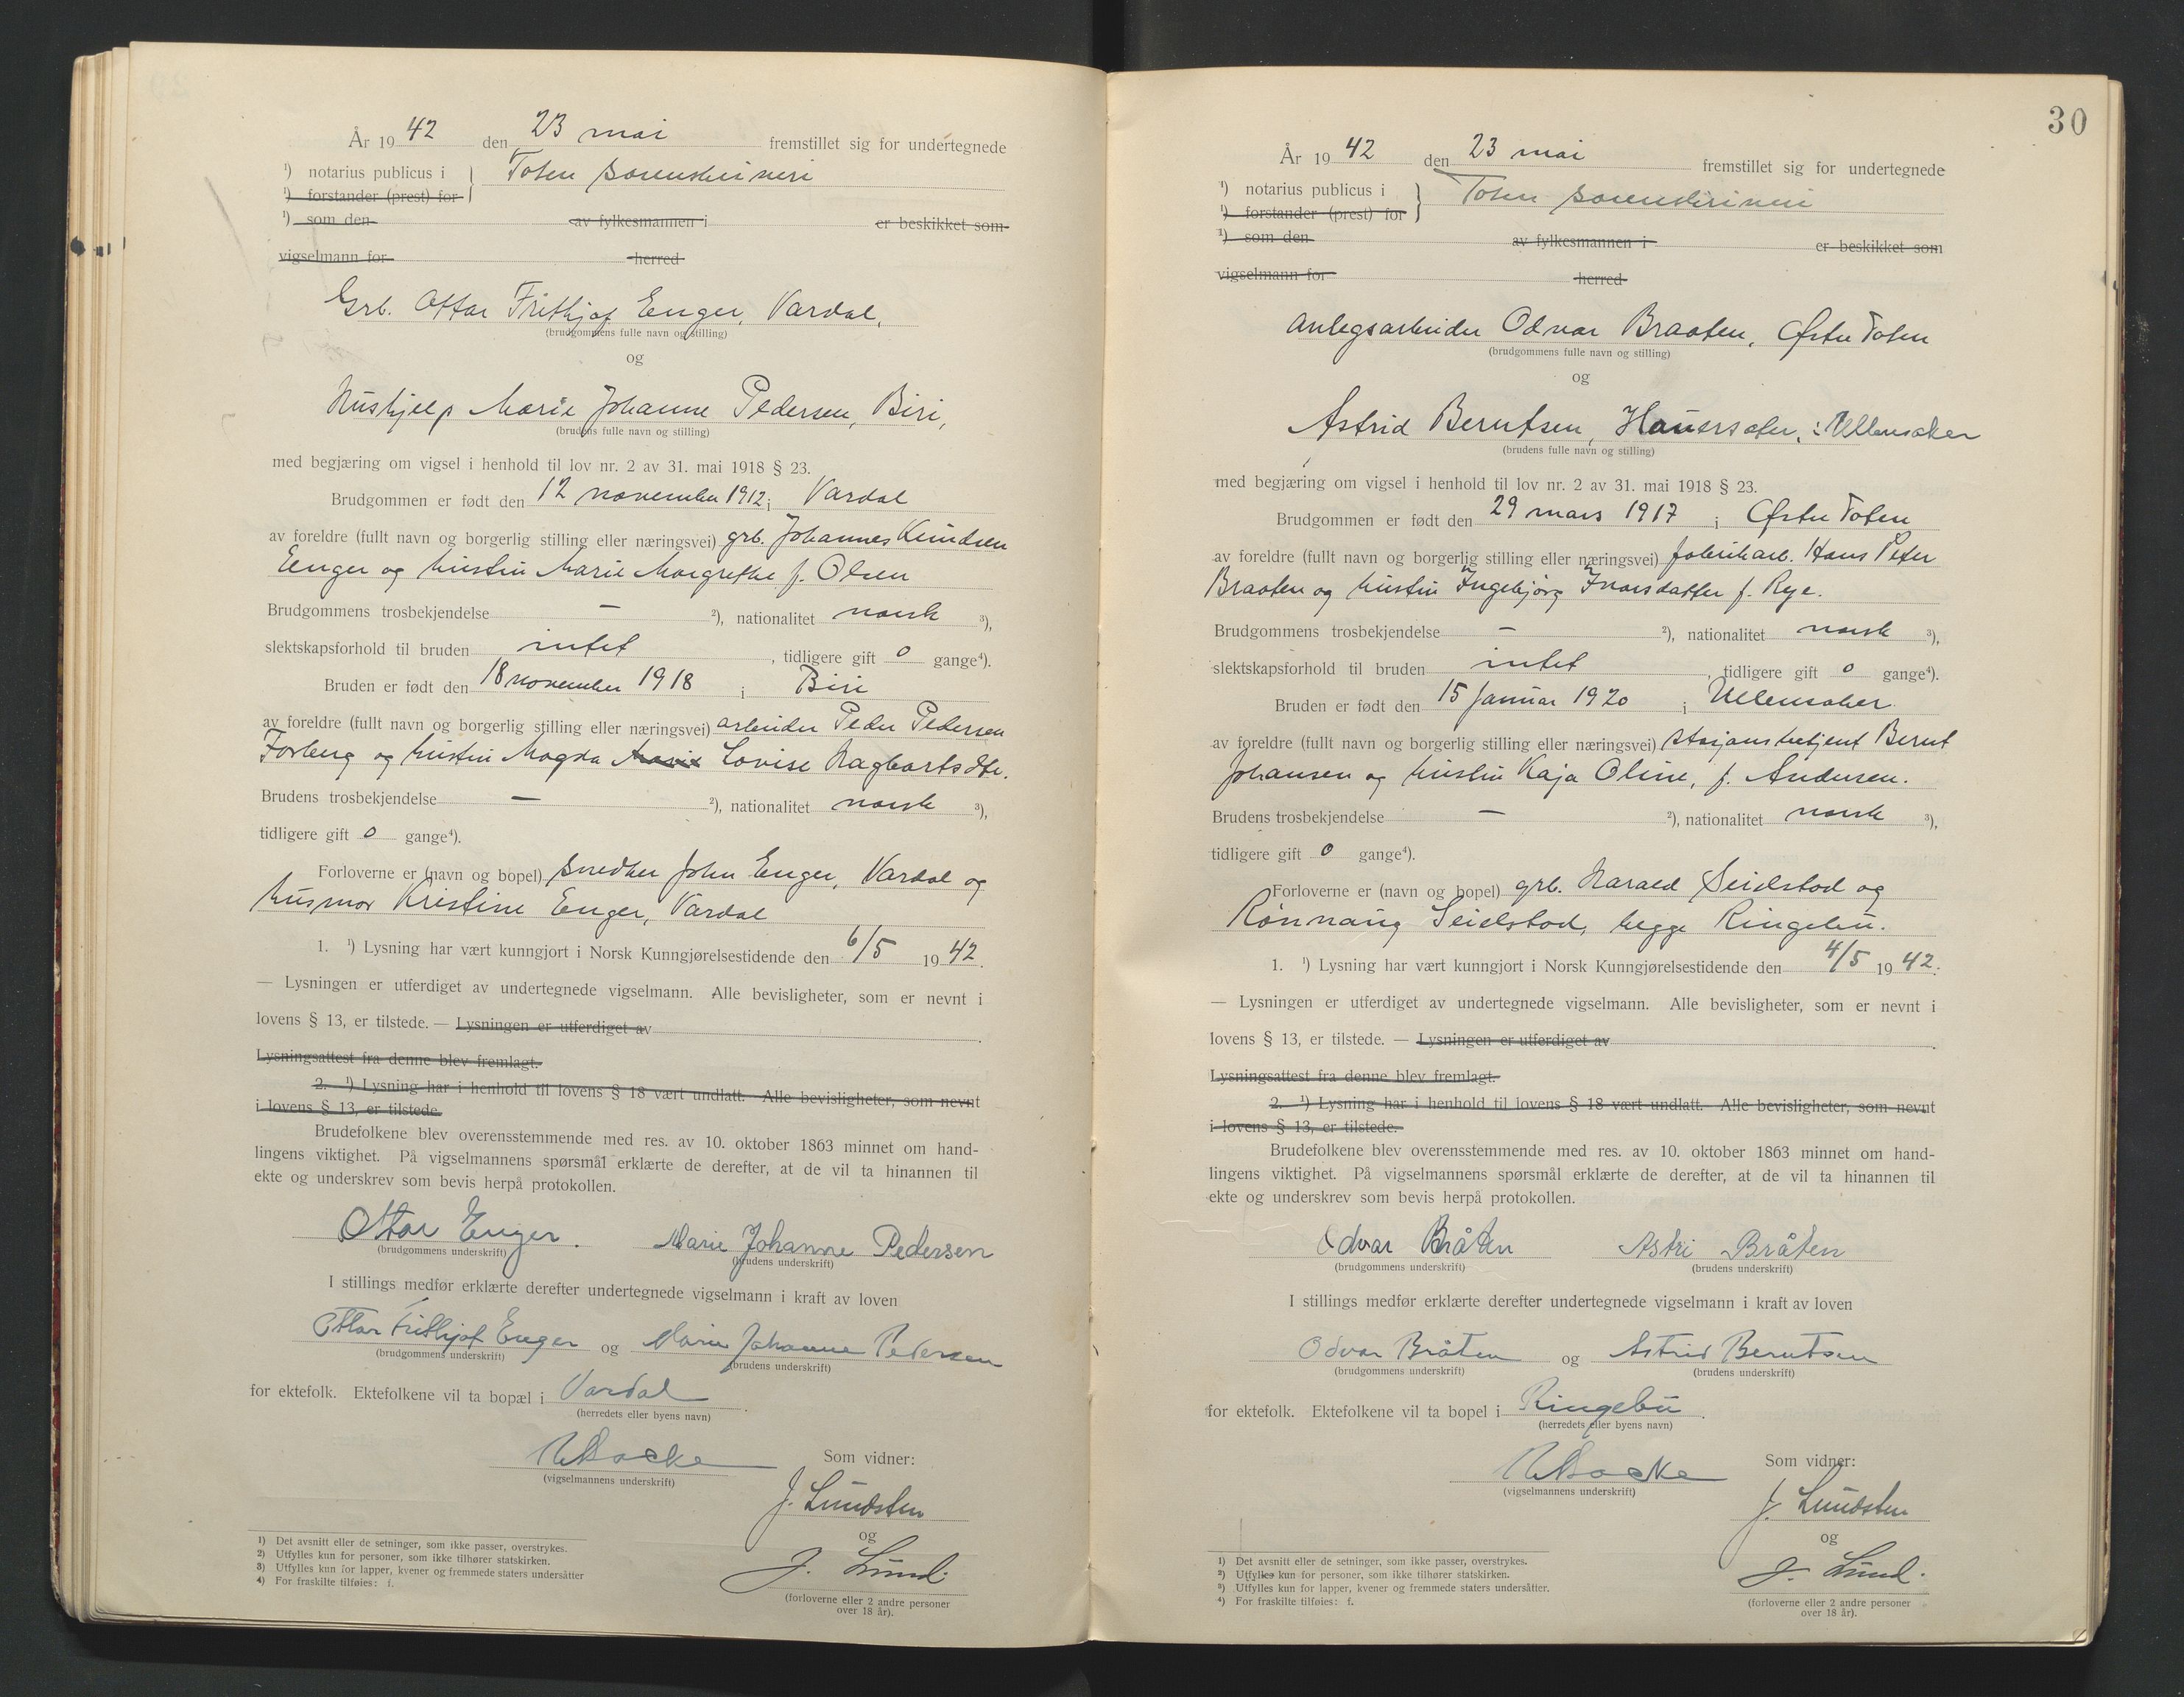 År 1942 den 23 mai fremstillet sig for undertegnede
¹) notarius publicus i } Toten sorenskriveri
¹) forstander (prest) for
¹) som den av fylkesmannen i er beskikket som
vigselmann for herred
Grb. Ottar Frithjof Enger, Vardal,
(brudgommens fulle navn og stilling)
og
Hushjelp Marie Johanne Pedersen, Biri,
(brudens fulle navn og stilling)
med begjæring om vigsel i henhold til lov nr. 2 av 31. mai 1918 § 23.
Brudgommen er født den 12 november 1912 i Vardal
av foreldre (fullt navn og borgerlig stilling eller næringsvei) grb. Johannes Knudsen
Enger og hustru Marie Margrethe f. Olsen
Brudgommens trosbekjendelse — ²), nationalitet norsk ³),
slektskapsforhold til bruden intet, tidligere gift 0 gange⁴).
Bruden er født den 18 november 1918 i Biri
av foreldre (fullt navn og borgerlig stilling eller næringsvei) arbeider Peder Pedersen
Forberg og hustru Magda Lovise Hagbartsdtr.
Brudens trosbekjendelse — ²), nationalitet norsk ³),
tidligere gift 0 gange⁴).
Forloverne er (navn og bopel) snedker John Enger, Vardal og
husmor Kristine Enger, Vardal
1. ¹) Lysning har vært kunngjort i Norsk Kunngjørelsestidende den 6/5 1942.
— Lysningen er utferdiget av undertegnede vigselmann. Alle bevisligheter, som er nevnt i
lovens § 13, er tilstede. — Lysningen er utferdiget av .
Lysningsattest fra denne blev fremlagt.
2. ¹) Lysning har i henhold til lovens § 18 vært undlatt. Alle bevisligheter, som nevnt
i lovens § 13, er tilstede.
Brudefolkene blev overensstemmende med res. av 10. oktober 1863 minnet om hand-
lingens viktighet. På vigselmannens spørsmål erklærte de derefter, at de vil ta hinannen til
ekte og underskrev som bevis herpå protokollen.
Ottar Enger. Marie Johanne Pedersen
(brudgommens underskrift) (brudens underskrift)
I stillings medfør erklærte derefter undertegnede vigselmann i kraft av loven
Ottar Frithjof Enger og Marie Johanne Pedersen
(brudgommens underskrift) (brudens underskrift)
for ektefolk. Ektefolkene vil ta bopæl i Vardal .
(herredets eller byens navn)
Som vidner:
(vigselmannens underskrift)
J. Lundsten
og
J. Lund.
(forloverne eller 2 andre personer
over 18 år).
1) Det avsnitt eller de setninger, som ikke passer, overstrykes.
2) Utfylles kun for personer, som ikke tilhører statskirken.
3) Utfylles kun for lapper, kvener og fremmede staters undersåtter
4) For fraskilte tilføies: f.
30
År 1942 den 23 mai fremstillet sig for undertegnede
¹) notarius publicus i } Toten sorenskriveri
¹) forstander (prest) for
¹) som den av fylkesmannen i er beskikket som
vigselmann for herred
Anlegsarbeider Odvar Braaten, Østre Toten
(brudgommens fulle navn og stilling)
og
Astrid Berntsen, Hauersæter, Ullensaker
(brudens fulle navn og stilling)
med begjæring om vigsel i henhold til lov nr. 2 av 31. mai 1918 § 23.
Brudgommen er født den 29 mars 1917 i Østre Toten
av foreldre (fullt navn og borgerlig stilling eller næringsvei) fabrikarb. Hans Peter
Braaten og hustru Ingebjörg Ivarsdatter f. Rye.
Brudgommens trosbekjendelse — ²), nationalitet norsk ³),
slektskapsforhold til bruden intet, tidligere gift 0 gange⁴).
Bruden er født den 15 januar 1920 i Ullensaker.
av foreldre (fullt navn og borgerlig stilling eller næringsvei) stasjonsbetjent Bernt
Johansen og hustru Kaja Oline, f. Andersen.
Brudens trosbekjendelse — ²), nationalitet norsk ³),
tidligere gift 0 gange⁴).
Forloverne er (navn og bopel) grb. Harald Seielstad og
Rönnaug Seielstad, begge Ringebu.
1. ¹) Lysning har vært kunngjort i Norsk Kunngjørelsestidende den 4/5 1942.
— Lysningen er utferdiget av undertegnede vigselmann. Alle bevisligheter, som er nevnt i
lovens § 13, er tilstede. — Lysningen er utferdiget av .
Lysningsattest fra denne blev fremlagt.
2. ¹) Lysning har i henhold til lovens § 18 vært undlatt. Alle bevisligheter, som nevnt
i lovens § 13, er tilstede.
Brudefolkene blev overensstemmende med res. av 10. oktober 1863 minnet om hand-
lingens viktighet. På vigselmannens spørsmål erklærte de derefter, at de vil ta hinannen til
ekte og underskrev som bevis herpå protokollen.
Odvar Bråten Astri Bråten
(brudgommens underskrift) (brudens underskrift)
I stillings medfør erklærte derefter undertegnede vigselmann i kraft av loven
Odvar Bråten og Astrid Berntsen
(brudgommens underskrift) (brudens underskrift)
for ektefolk. Ektefolkene vil ta bopel i Ringebu .
(herredets eller byens navn)
Som vidner:
(vigselmannens underskrift)
J. Lundsten
og
J. Lund.
(forloverne eller 2 andre personer
over 18 år).
1) Det avsnitt eller de setninger, som ikke passer, overstrykes.
2) Utfylles kun for personer, som ikke tilhører statskirken.
3) Utfylles kun for lapper, kvener og fremmede staters undersåtter.
4) For fraskilte tilføies: f.